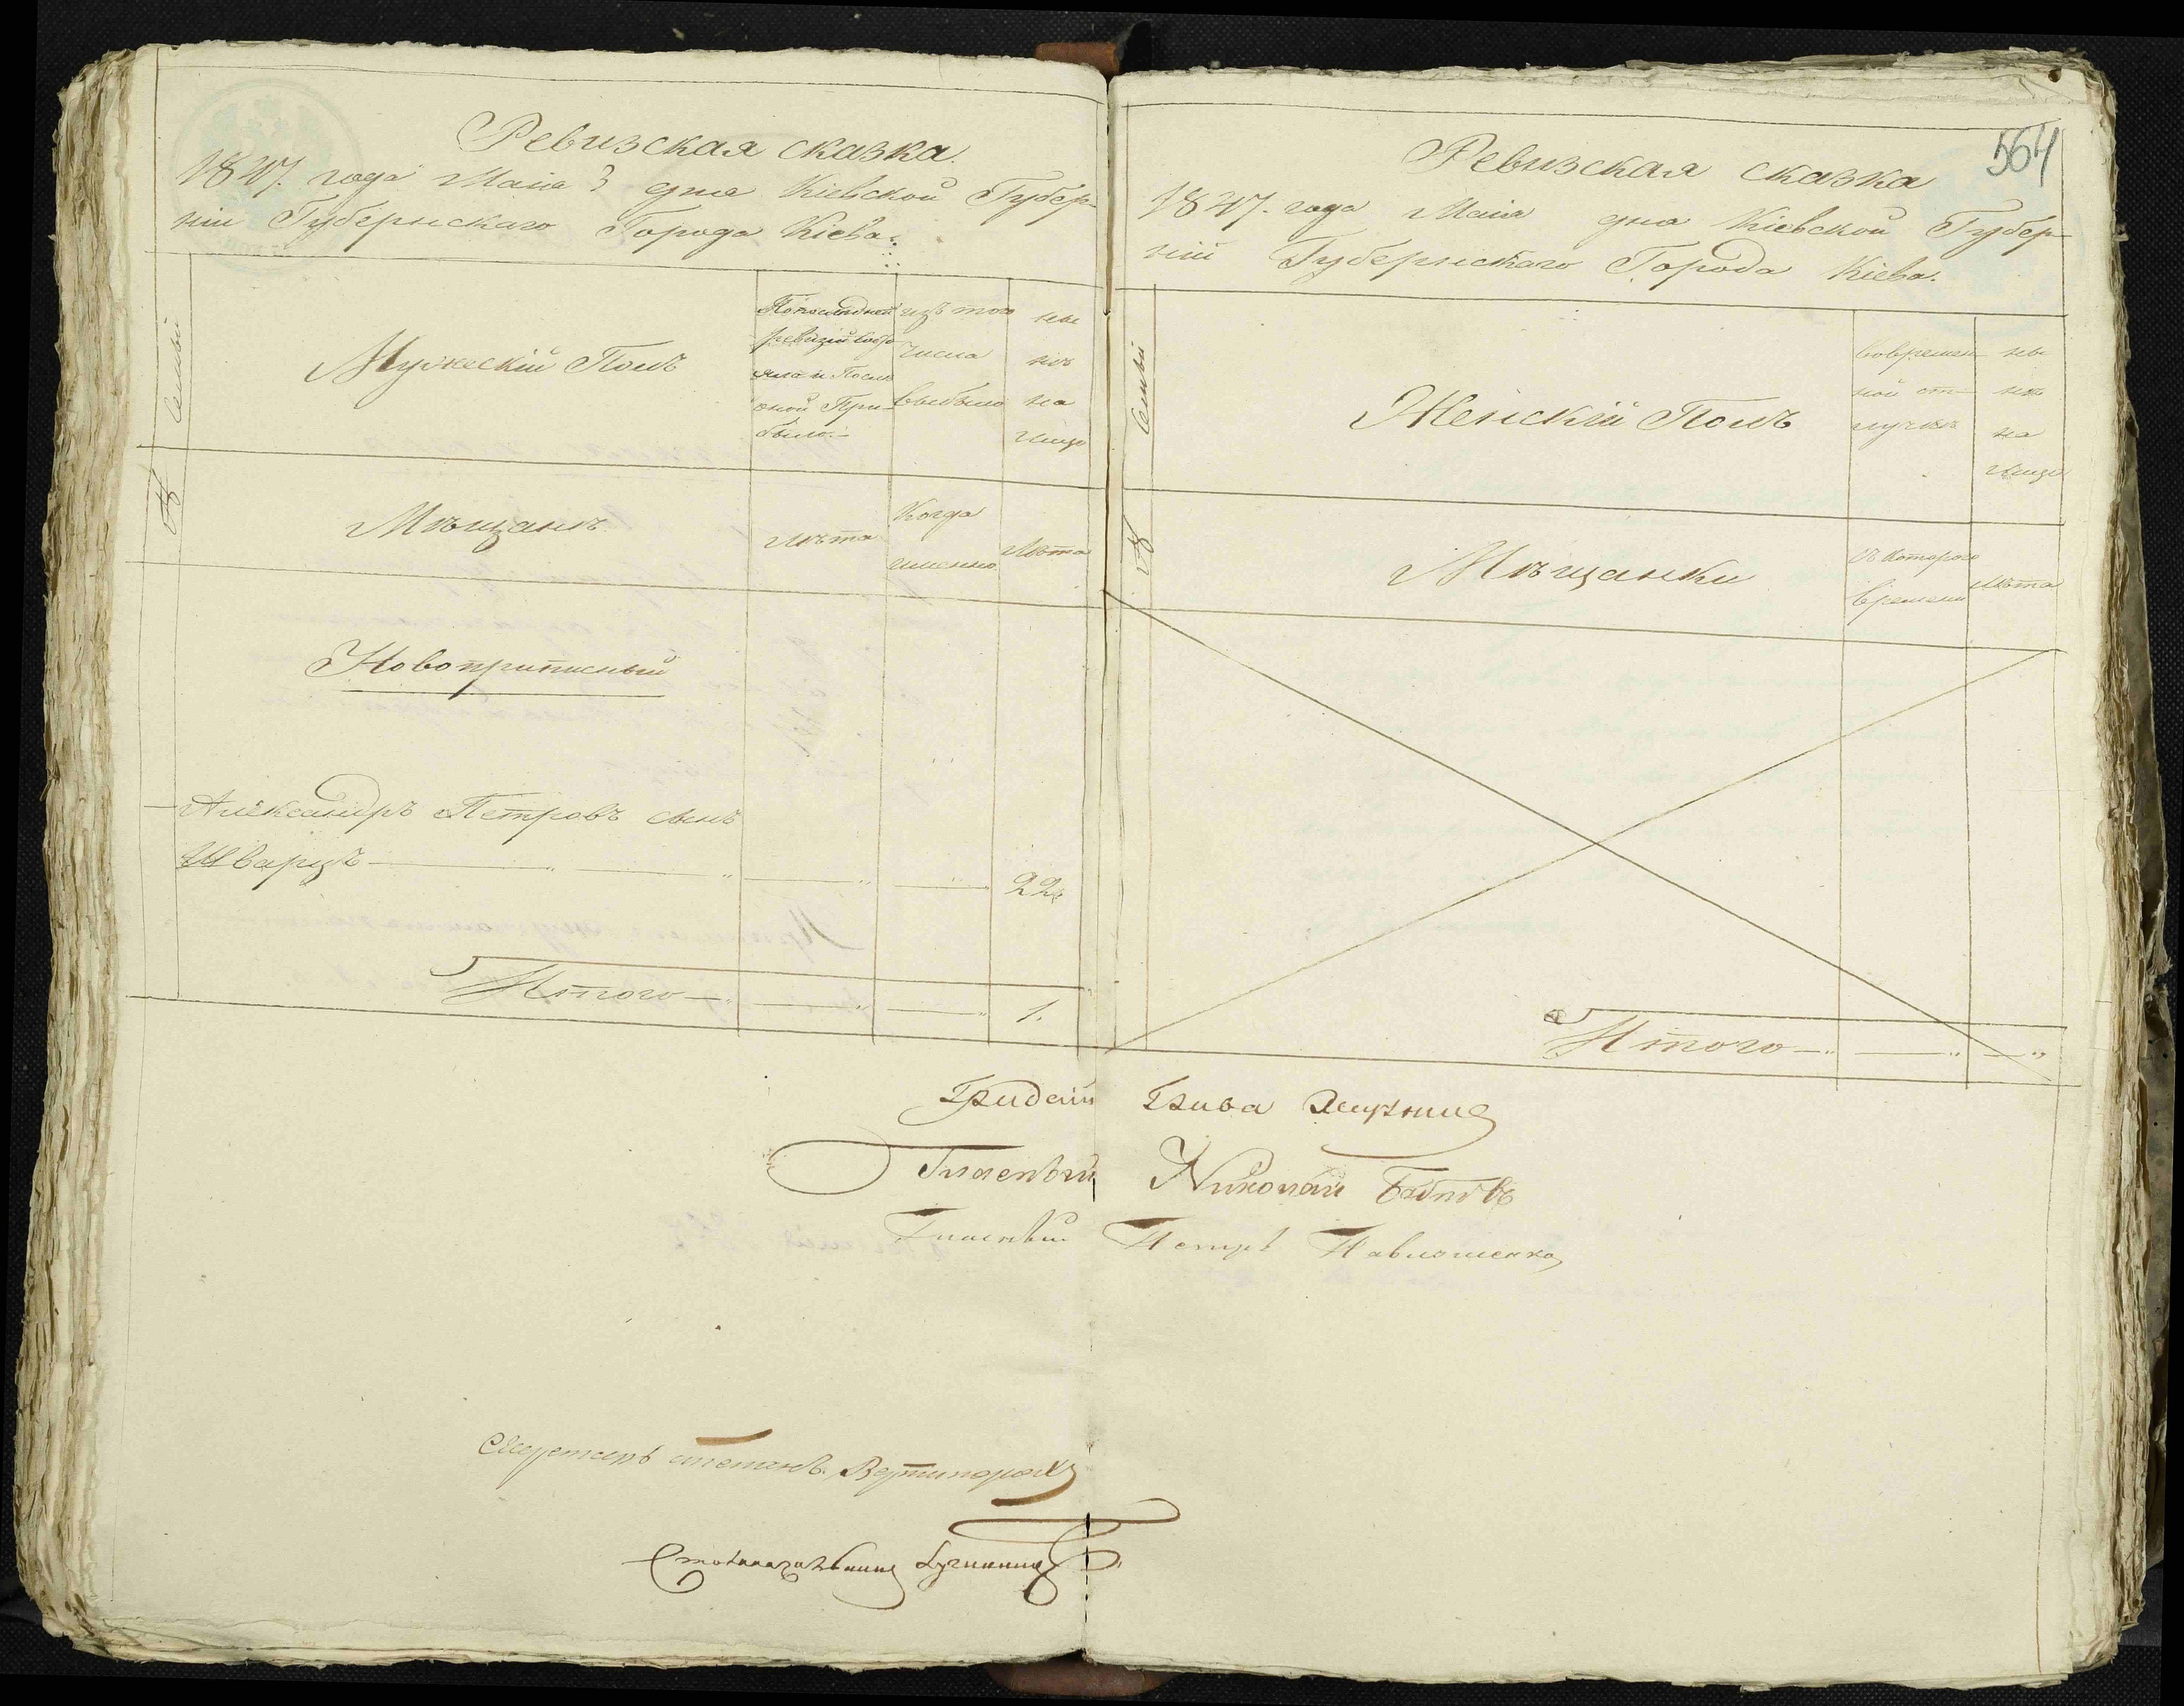 Ревизская сказка.
1847. года Маія 3 дня Кіевской Губер-
ніи Губернскаго Города Кіева.
Семьи
Мужескій Полъ
По последней
ревизіи состо
яло и После
оной При-
было.
изъ того
числа
выбыло
ны
нѣ
на
лицо
№
Мѣщанъ
Лѣта
Когда
именно
Лѣта
Новоприписный
Александръ Петровъ сынъ
Шварцъ 22.
Итого 1.
564
Ревизская сказка
1847. года Маія дня Кіевской Губер-
ніи Губернскаго Города Кіева.
Семьи
Женскій Полъ
Во времен-
ной от-
лучкѣ
ны
нѣ
на
лицо
№
Мѣщанки
Съ котораго
времени
Лѣта
Итого
Гласный Николай
Гласный Петръ Павлошенко
Секретарь Степанъ
Столоначальникъ